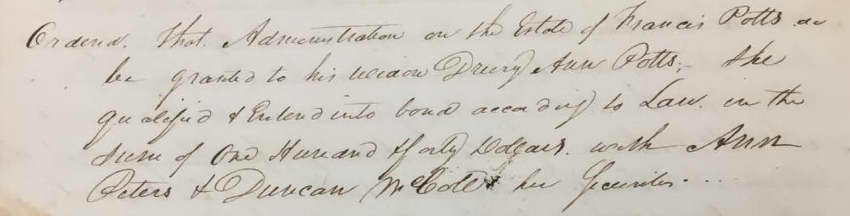 Ordered. That. Administration on the Estate of Francis Potts de
be granted to his widow Drury Ann Potts,- She
qualified & Entered into bond according to Law. in the
sum of One Hundred & forty Dollars. with Ann
Peters & Duncan McColl her Securities. . . .